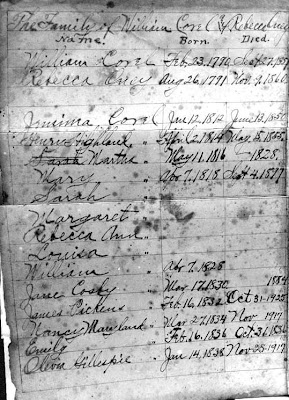 The Family of William Core & Rebecca
Name. Born. Died.
William Core Feb. 23, 1790 Sept. 27, 18
Rebecca Aug 26, 1791 Nov. 9, 1860
Jemima Core Jan. 12, 1812 June 13, 185
Henry Highland " April 2, 1814 May 15, 1885
Sarah Martha " May 11, 1816 — 1828
Mary " Apr 7, 1818 Sept 4, 1877
Sarah "
Margaret "
Rebecca Ann "
Louisa "
William " Apr 7, 1828
Jane Cosby " Mar 17, 1830 1884
James Pickens " Feb 16, 1832 Oct 31-1925
Nancy " Mar 27, 1834 Nov 1917
Emily " Feb. 16, 1836 Oct 31, 1836
Olivia Gillespie " Jan 14, 1838 Nov 25-1919